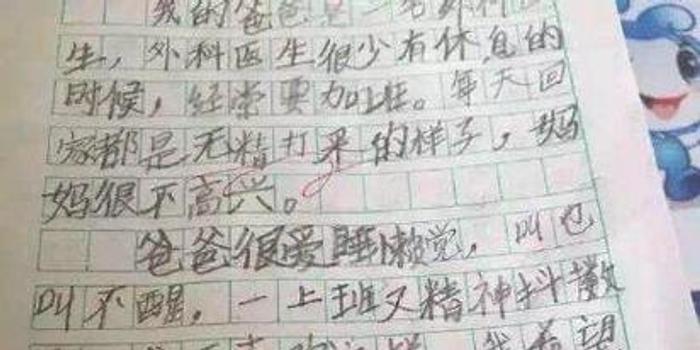 我的爸爸是一名外科医
生，外科医生很少有休息的
时候，经常要加班。每天回
家都是无精打采的样子，妈
妈很不高兴。
爸爸很爱睡懒觉，叫也
叫不醒，一上班又精神抖擞
我希望